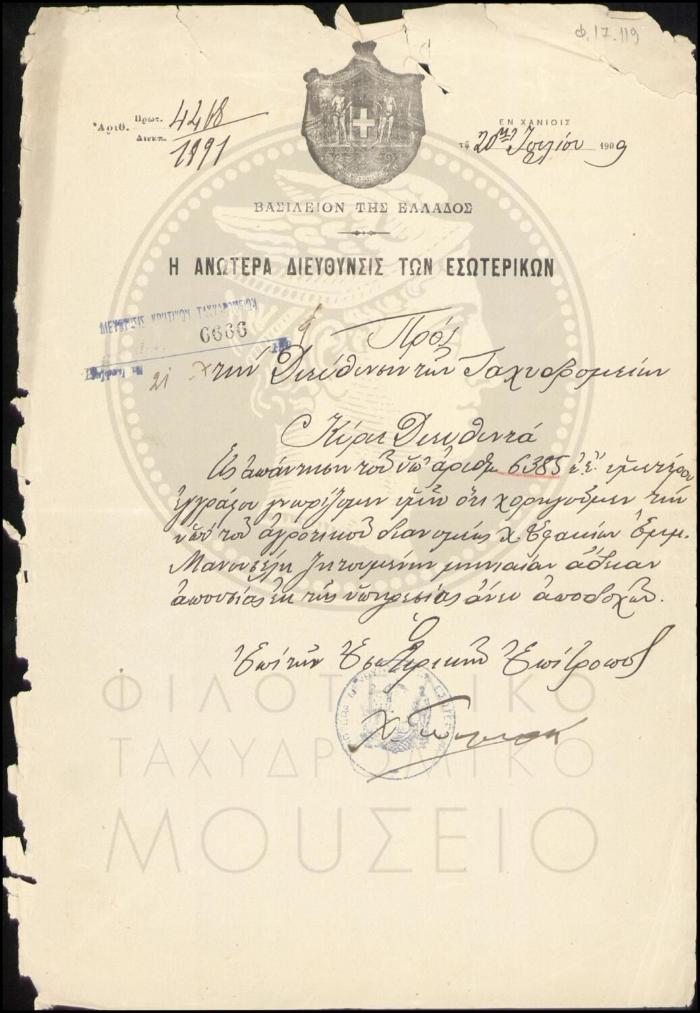 Φ.17.119
Ἀριθ. Πρωτ. 4418
Διεκπ. 1991
ΕΝ ΧΑΝΙΟΙΣ
τῇ 20ῃ Ἰουλίου 1909
ΒΑΣΙΛΕΙΟΝ ΤΗΣ ΕΛΛΑΔΟΣ
Η ΑΝΩΤΕΡΑ ΔΙΕΥΘΥΝΣΙΣ ΤΩΝ ΕΣΩΤΕΡΙΚΩΝ
ΚΡΗΤΙΚΩΝ ΤΑΧΥΔΡΟΜΕΙΩΝ
6666
21
Πρός
τὴν Διεύθυνσιν τῶν Ταχυδρομείων
Κύριε Διευθυντά
Εἰς ἀπάντησιν τοῦ ὑπ' ἀριθμ. 6385 ἐ.ἔ. ὑμετέρου
ἐγγράφου γνωρίζομεν ὑμῖν ὅτι χορηγοῦμεν τὴν
ὑπὸ τοῦ ἀγροτικοῦ διανομέως Χ. Σφακίων Ἐμμ.
Μανουσέλη ζητουμένην μηνιαίαν ἄδειαν
ἀπουσίας ἐκ τῆς ὑπηρεσίας ἄνευ ἀποδοχῶν.
Ὁ
Ἐπὶ τῶν Ἐσωτερικῶν Ἐπίτροπος
ΦΙΛΟΤΕΛΙΚΟ
ΤΑΧΥΔΡΟΜΙΚΟ
ΜΟΥΣΕΙΟ